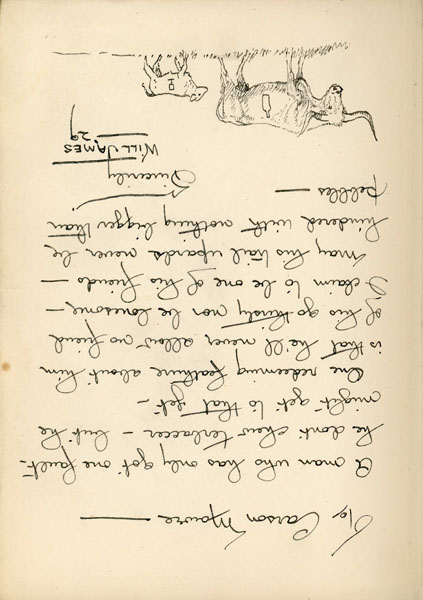 To Carson —
A man who has only got one fault-
he dont chew terbaccer - but he
might get to that yet -
One redeeming feathure about him
is that he'll never allow no friend
of his go thirsty nor be lonesome -
I claim to be one of his friends -
may his trail upards never be
hindered with nothing bigger than
pebbles -
Sincerily
WILL JAMES
29